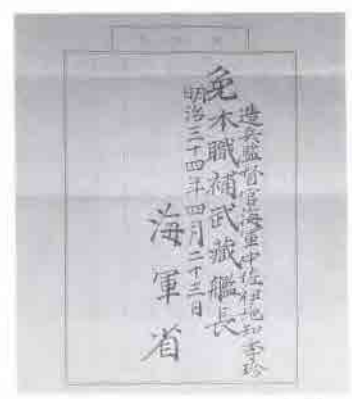 造兵監督官海軍中佐伊地知季珍
免本職補武蔵艦長
明治三十四年四月二十三日
海軍省